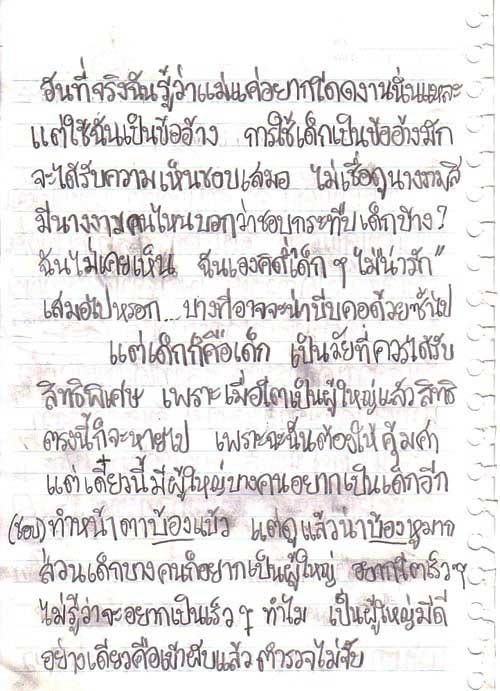 อันที่จริงฉันรู้ว่าแม่แค่อยากโดดงานนั่นแหละ
แต่ใช้ฉันเป็นข้ออ้าง การใช้เด็กเป็นข้ออ้างมัก
จะได้รับความเห็นชอบเสมอ ไม่เชื่อดูนางงามสิ
มีนางงามคนไหนบอกว่าชอบกระทืบเด็กบ้าง?
ฉันไม่เคยเห็น ฉันเองคิดว่าเด็ก ๆ ไม่น่ารัก"
เสมอไปหรอก... บางทีอาจจะน่าบีบคอด้วยซ้ำไป
แต่เด็กก็คือเด็ก เป็นวัยที่ควรได้รับ
สิทธิพิเศษ เพราะเมื่อโตเป็นผู้ใหญ่แล้วสิทธิ
ตรงนี้ก็จะหายไป เพราะฉะนั้นต้องใช้ให้คุ้มค่า
แต่เดี๋ยวนี้มีผู้ใหญ่บางคนอยากเป็นเด็กอีก
(ชอบ) ทำหน้าตาบ้องแบ๊ว แต่ดูแล้วน่าบ้องหูมาก
ส่วนเด็กบางคนก็อยากเป็นผู้ใหญ่ อยากโตเร็วๆ
ไม่รู้ว่าจะอยากเป็นเร็ว ๆ ทำไม เป็นผู้ใหญ่มีดี
อย่างเดียวคือเข้าผับแล้วตำรวจไม่จับ